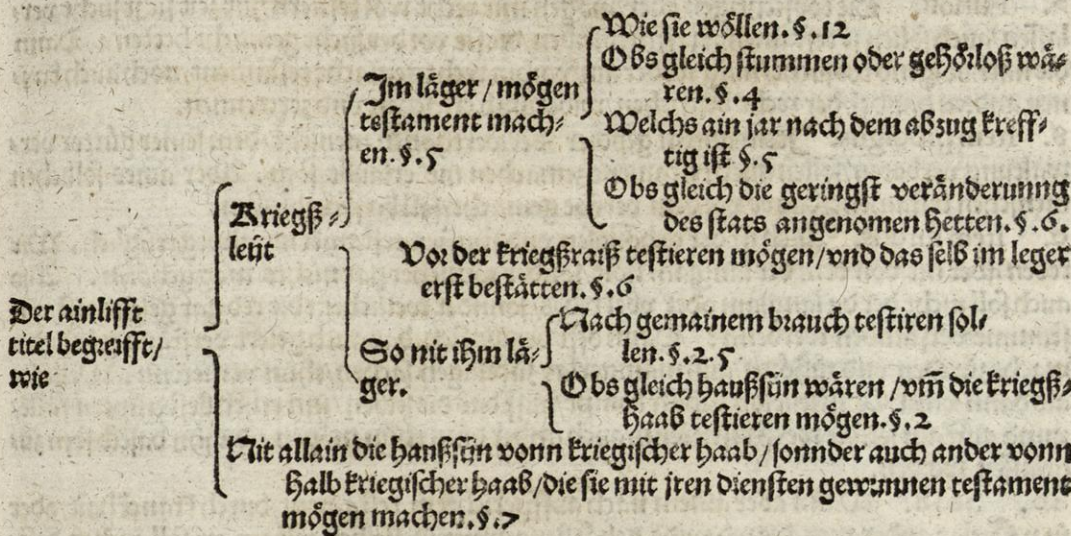 Der ainlifft
titel begreifft/
wie
Kriegß⸗
leüt
Im läger / mögen
testament mach⸗
en. §. 5
Wie sie wöllen. §. 12
Obs gleich stummen oder gehörloß wä⸗
ren. §. 4
Welchs ain jar nach dem abzug kreff⸗
tig ist §. 5
Obs gleich die geringst veränderunng
des stats angenomen hetten. §. 6.
Vor der kriegßraiß testieren mögen/vnd das selb im leger
erst bestätten. §. 6
So nit ihm lä⸗
ger.
Nach gemainem brauch testiren sol⸗
len. §. 2. 5
Obs gleich haußsün wären /vm̄ die kriegß⸗
haab testieren mögen. §. 2
Nit allain die haußsün vonn kriegischer haab/sonnder auch ander vonn
halb kriegischer haab/die sie mit jren diensten gewunnen testament
mögen machen. §. 7